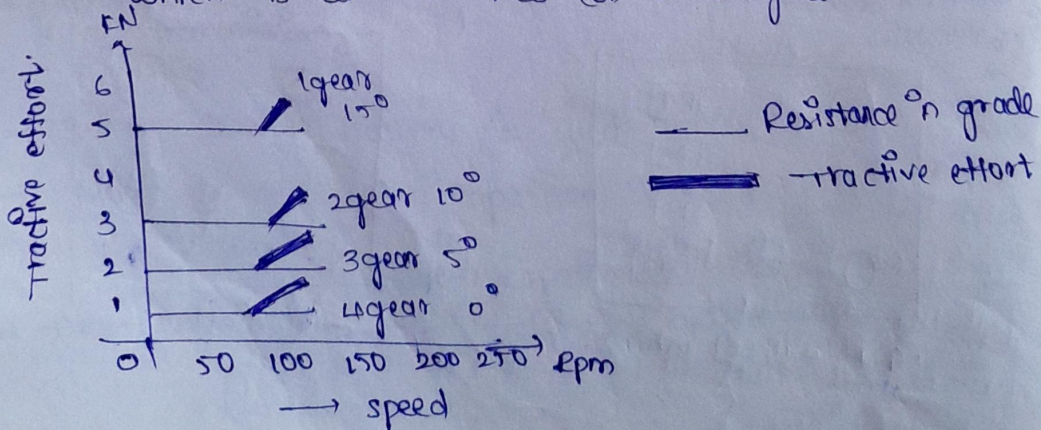 KN
6
5
4
3
2
1
Tractive effort.
1gear
15°
2gear 10°
3gear 5°
4gear 0°
0 50 100 150 200 250 Rpm
→ speed
Resistance in grade
Tractive effort